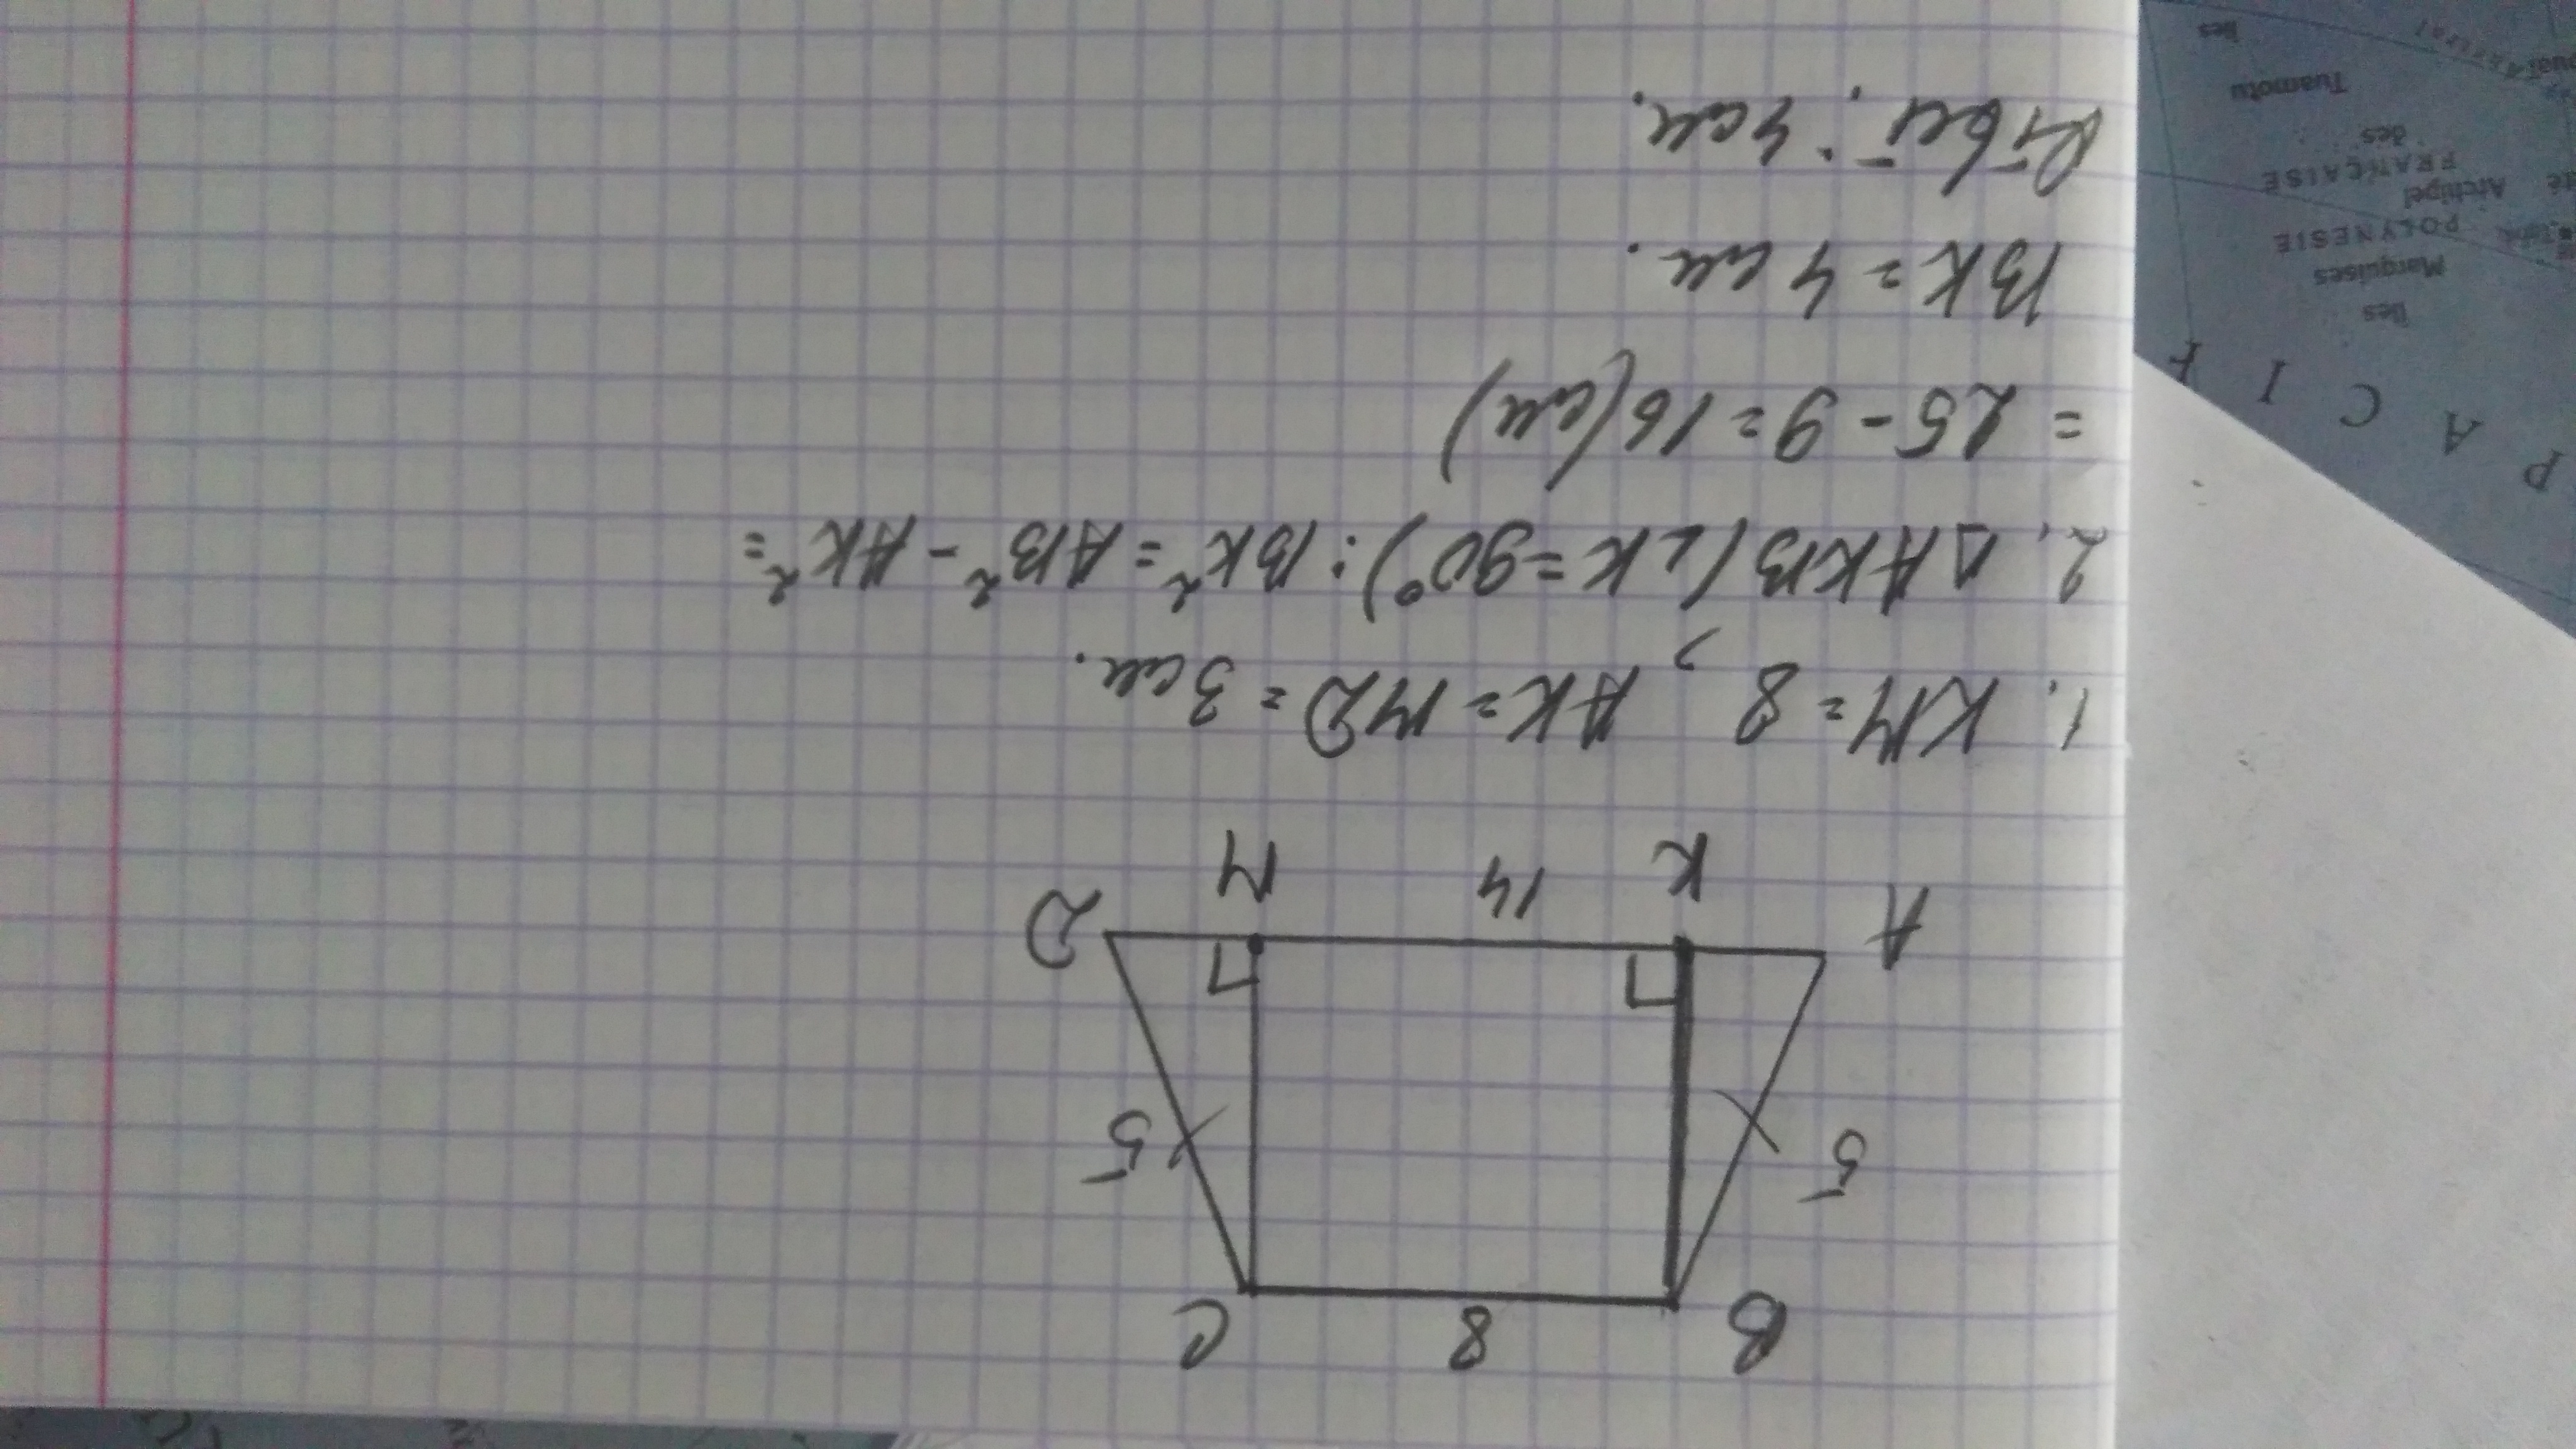 B 8 C
5 5
A K 14 M D
1. KM = 8, AK = MD = 3 см.
2. △ AKB (∠K = 90°): BK² = AB² - AK² =
= 25 - 9 = 16 (см)
BK = 4 см.
Ответ: 4 см.
P A C I F
Îles
Marquises
POLYNÉSIE
Archipel
FRANÇAISE
des
Tuamotu
Îles